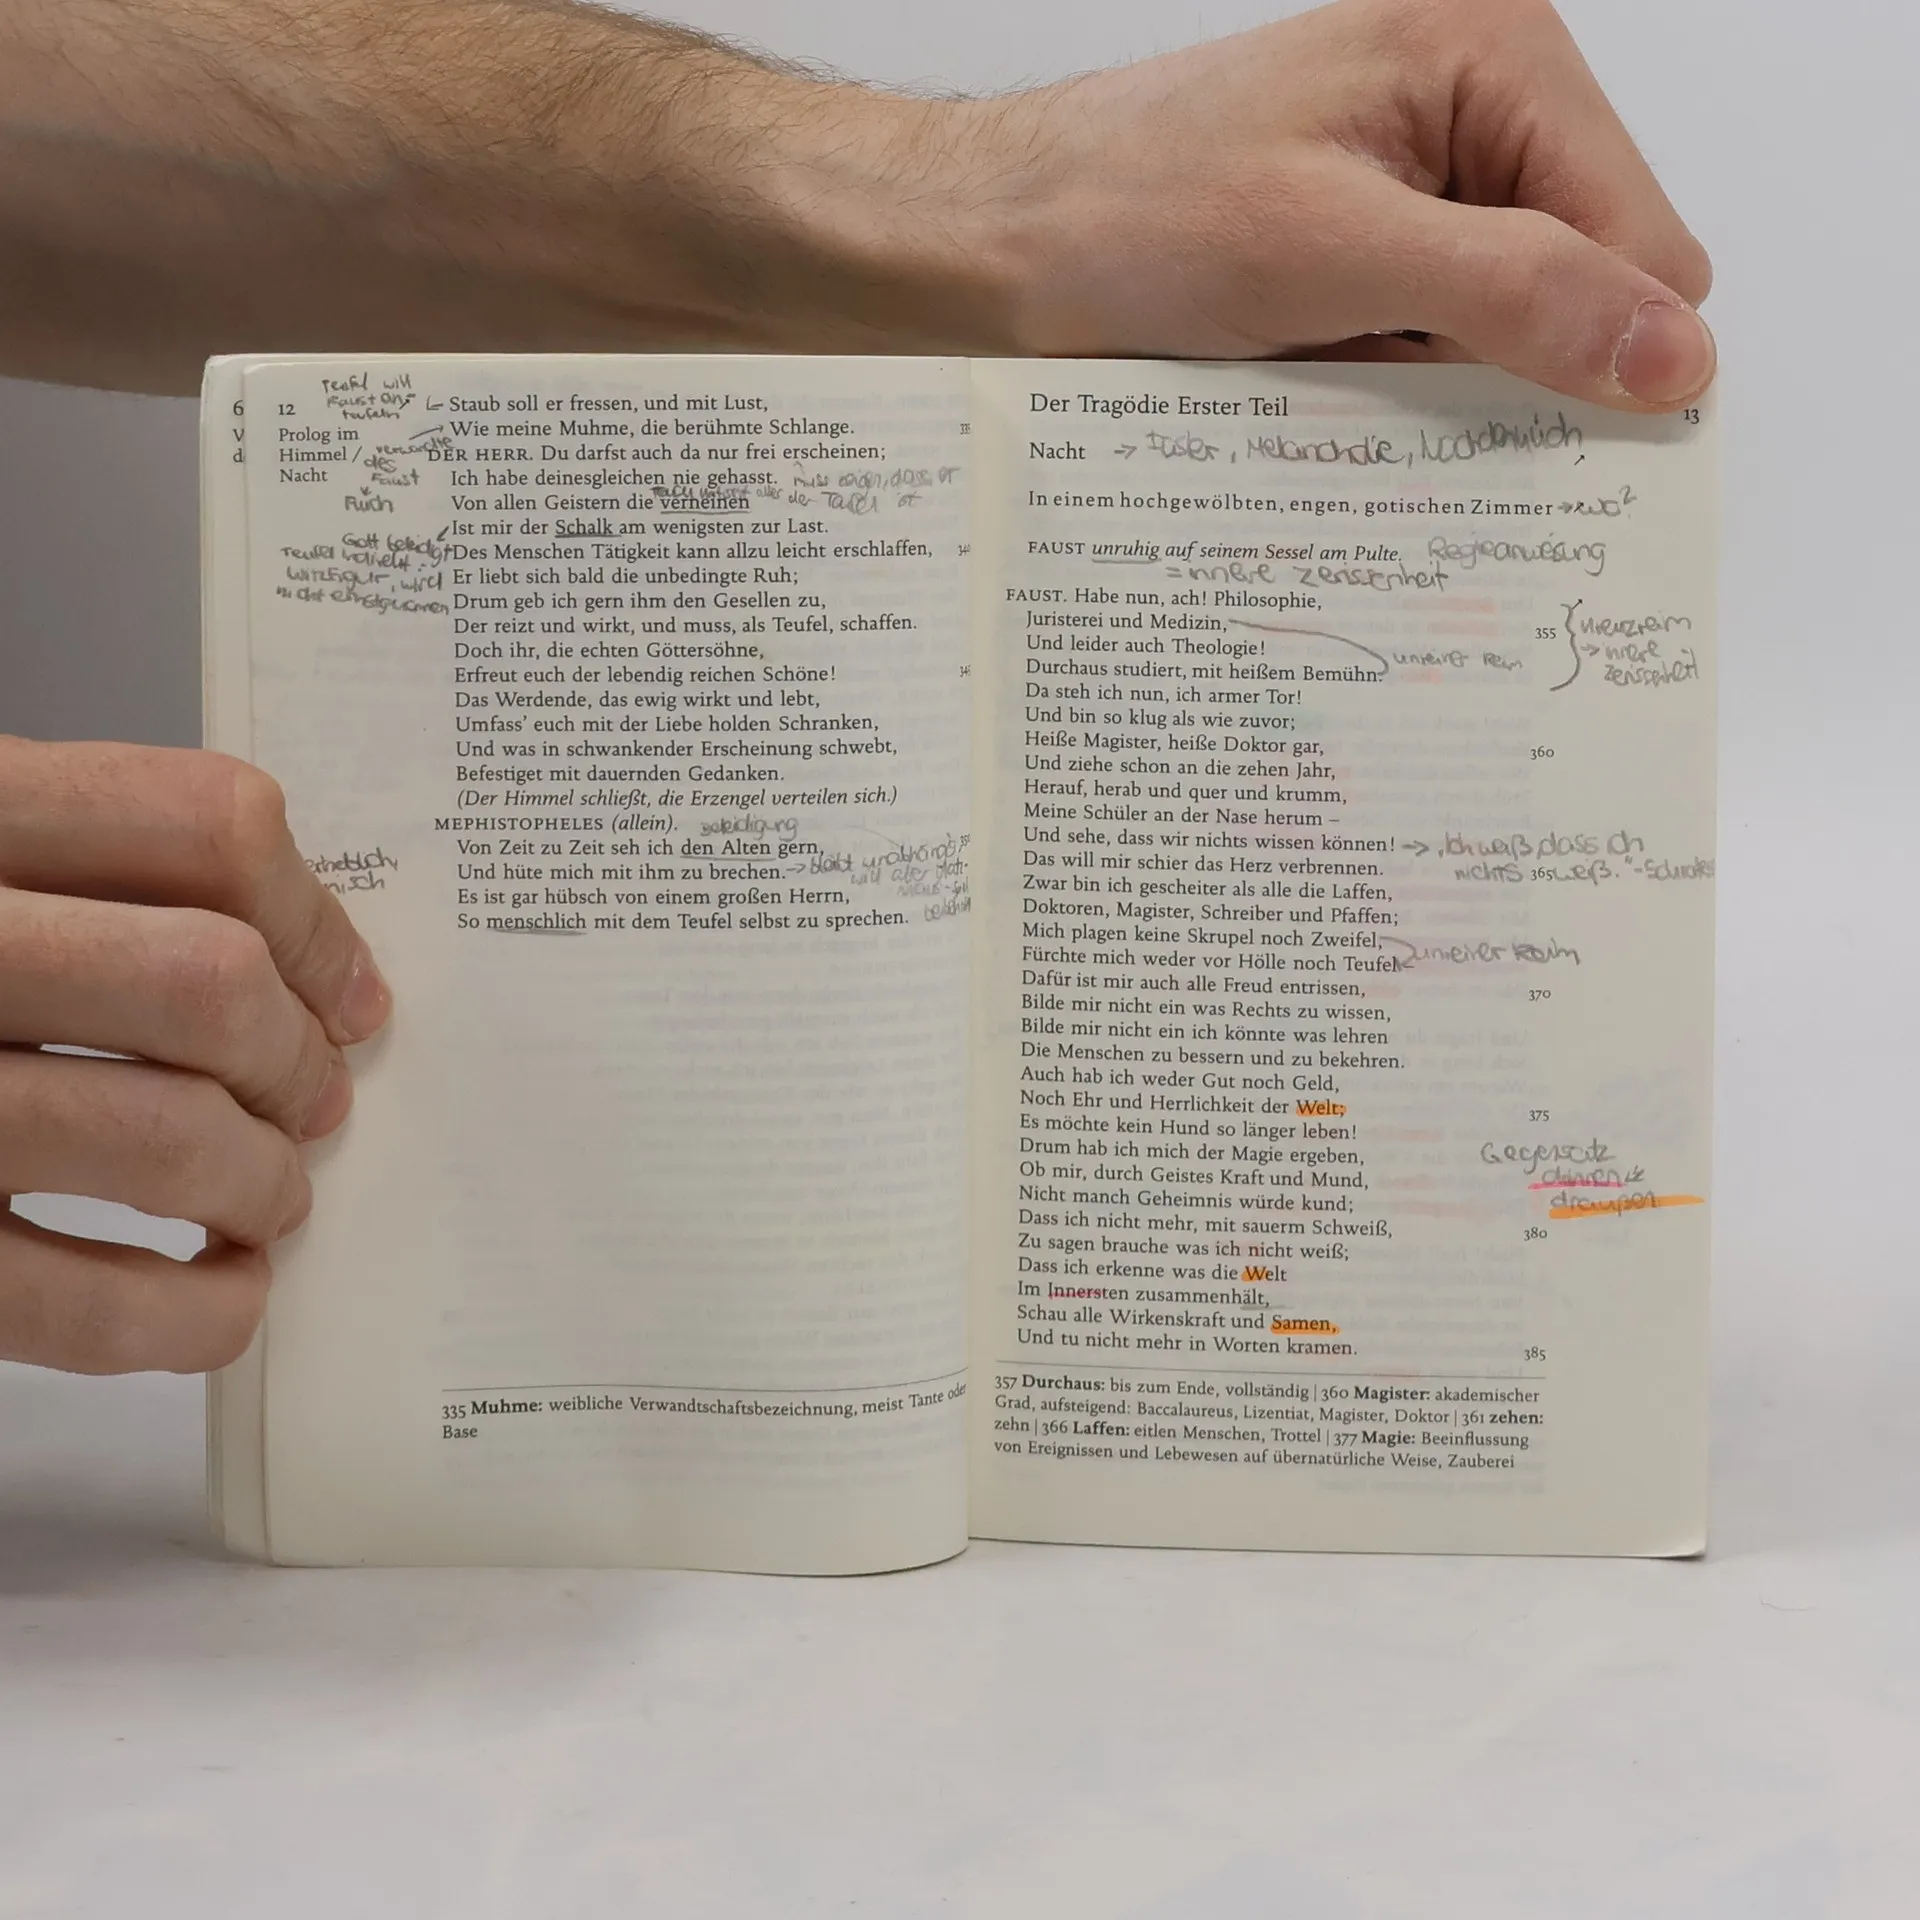 6
V
d
12
Prolog im
Himmel /
Nacht
Teufel will
Faust
Staub soll er fressen, und mit Lust,
Wie meine Muhme, die berühmte Schlange.
DER HERR. Du darfst auch da nur frei erscheinen;
Ich habe deinesgleichen nie gehasst.
Von allen Geistern die verneinen
Ist mir der Schalk am wenigsten zur Last.
Des Menschen Tätigkeit kann allzu leicht erschlaffen,
Er liebt sich bald die unbedingte Ruh;
Drum geb ich gern ihm den Gesellen zu,
Der reizt und wirkt, und muss, als Teufel, schaffen.
Doch ihr, die echten Göttersöhne,
Erfreut euch der lebendig reichen Schöne!
Das Werdende, das ewig wirkt und lebt,
Umfass' euch mit der Liebe holden Schranken,
Und was in schwankender Erscheinung schwebt,
Befestiget mit dauernden Gedanken.
(Der Himmel schließt, die Erzengel verteilen sich.)
MEPHISTOPHELES (allein). Beleidigung
Von Zeit zu Zeit seh ich den Alten gern,
Und hüte mich mit ihm zu brechen. -> bleibt unabhängig,
Es ist gar hübsch von einem großen Herrn,
So menschlich mit dem Teufel selbst zu sprechen.
335 Muhme: weibliche Verwandtschaftsbezeichnung, meist Tante oder
Base
13
Der Tragödie Erster Teil
Nacht -> Düster, Melancholie,
In einem hochgewölbten, engen, gotischen Zimmer -> wo?
FAUST unruhig auf seinem Sessel am Pulte. Regieanweisung
= innere Zerissenheit
FAUST. Habe nun, ach! Philosophie,
Juristerei und Medizin, 355 Kreuzreim
Und leider auch Theologie! unreiner Reim -> innere
Durchaus studiert, mit heißem Bemühn. Zerissenheit
Da steh ich nun, ich armer Tor!
Und bin so klug als wie zuvor;
Heiße Magister, heiße Doktor gar, 360
Und ziehe schon an die zehen Jahr,
Herauf, herab und quer und krumm,
Meine Schüler an der Nase herum –
Und sehe, dass wir nichts wissen können! -> „Ich weiß, dass ich
Das will mir schier das Herz verbrennen. nichts 365 weiß." - Sokrates
Zwar bin ich gescheiter als alle die Laffen,
Doktoren, Magister, Schreiber und Pfaffen;
Mich plagen keine Skrupel noch Zweifel,
Fürchte mich weder vor Hölle noch Teufel – unreiner Reim
Dafür ist mir auch alle Freud entrissen, 370
Bilde mir nicht ein was Rechts zu wissen,
Bilde mir nicht ein ich könnte was lehren
Die Menschen zu bessern und zu bekehren.
Auch hab ich weder Gut noch Geld,
Noch Ehr und Herrlichkeit der Welt; 375
Es möchte kein Hund so länger leben!
Drum hab ich mich der Magie ergeben, Gegensatz
Ob mir, durch Geistes Kraft und Mund, drinnen &
Nicht manch Geheimnis würde kund; draußen
Dass ich nicht mehr, mit sauerm Schweiß, 380
Zu sagen brauche was ich nicht weiß;
Dass ich erkenne was die Welt
Im Innersten zusammenhält,
Schau alle Wirkenskraft und Samen,
Und tu nicht mehr in Worten kramen. 385
357 Durchaus: bis zum Ende, vollständig | 360 Magister: akademischer
Grad, aufsteigend: Baccalaureus, Lizentiat, Magister, Doktor | 361 zehen:
zehn | 366 Laffen: eitlen Menschen, Trottel | 377 Magie: Beeinflussung
von Ereignissen und Lebewesen auf übernatürliche Weise, Zauberei